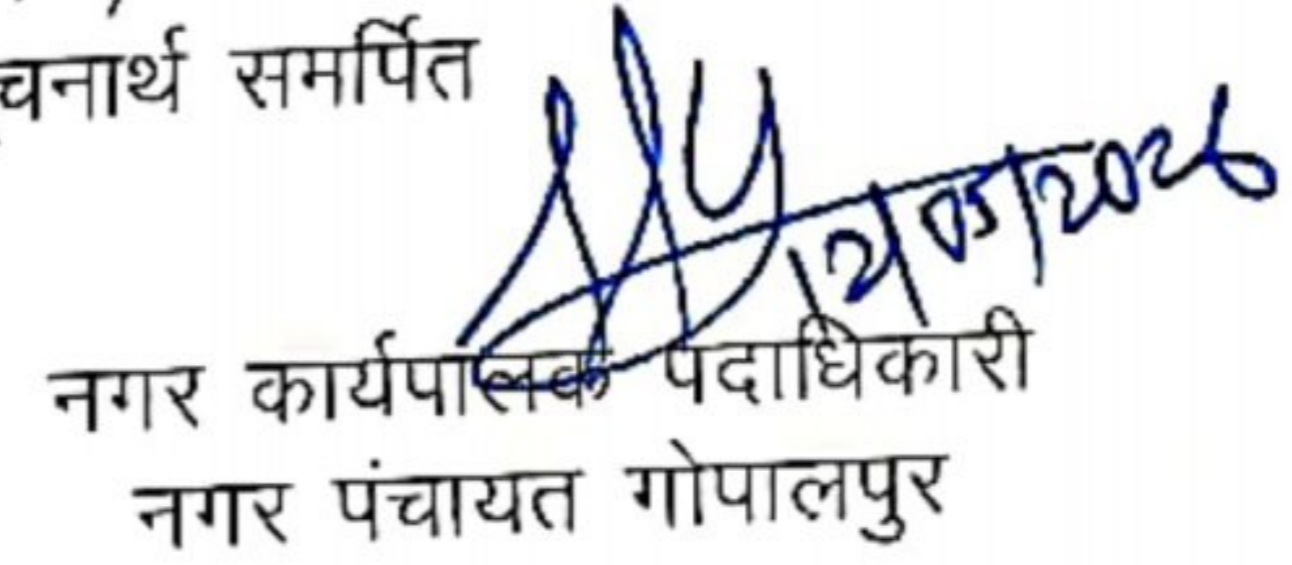 चनार्थ समर्पित
12/05/2026
नगर कार्यपालक पदाधिकारी
नगर पंचायत गोपालपुर